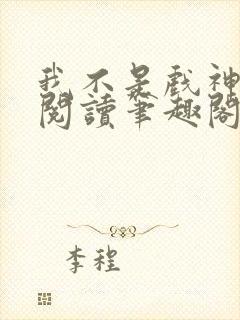 我不是戲神
閱讀筆趣閣
李程